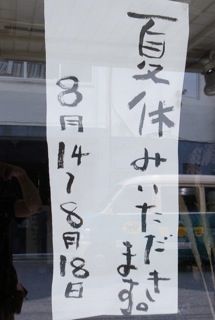 夏休みいただきます。
8月14〜8月18日